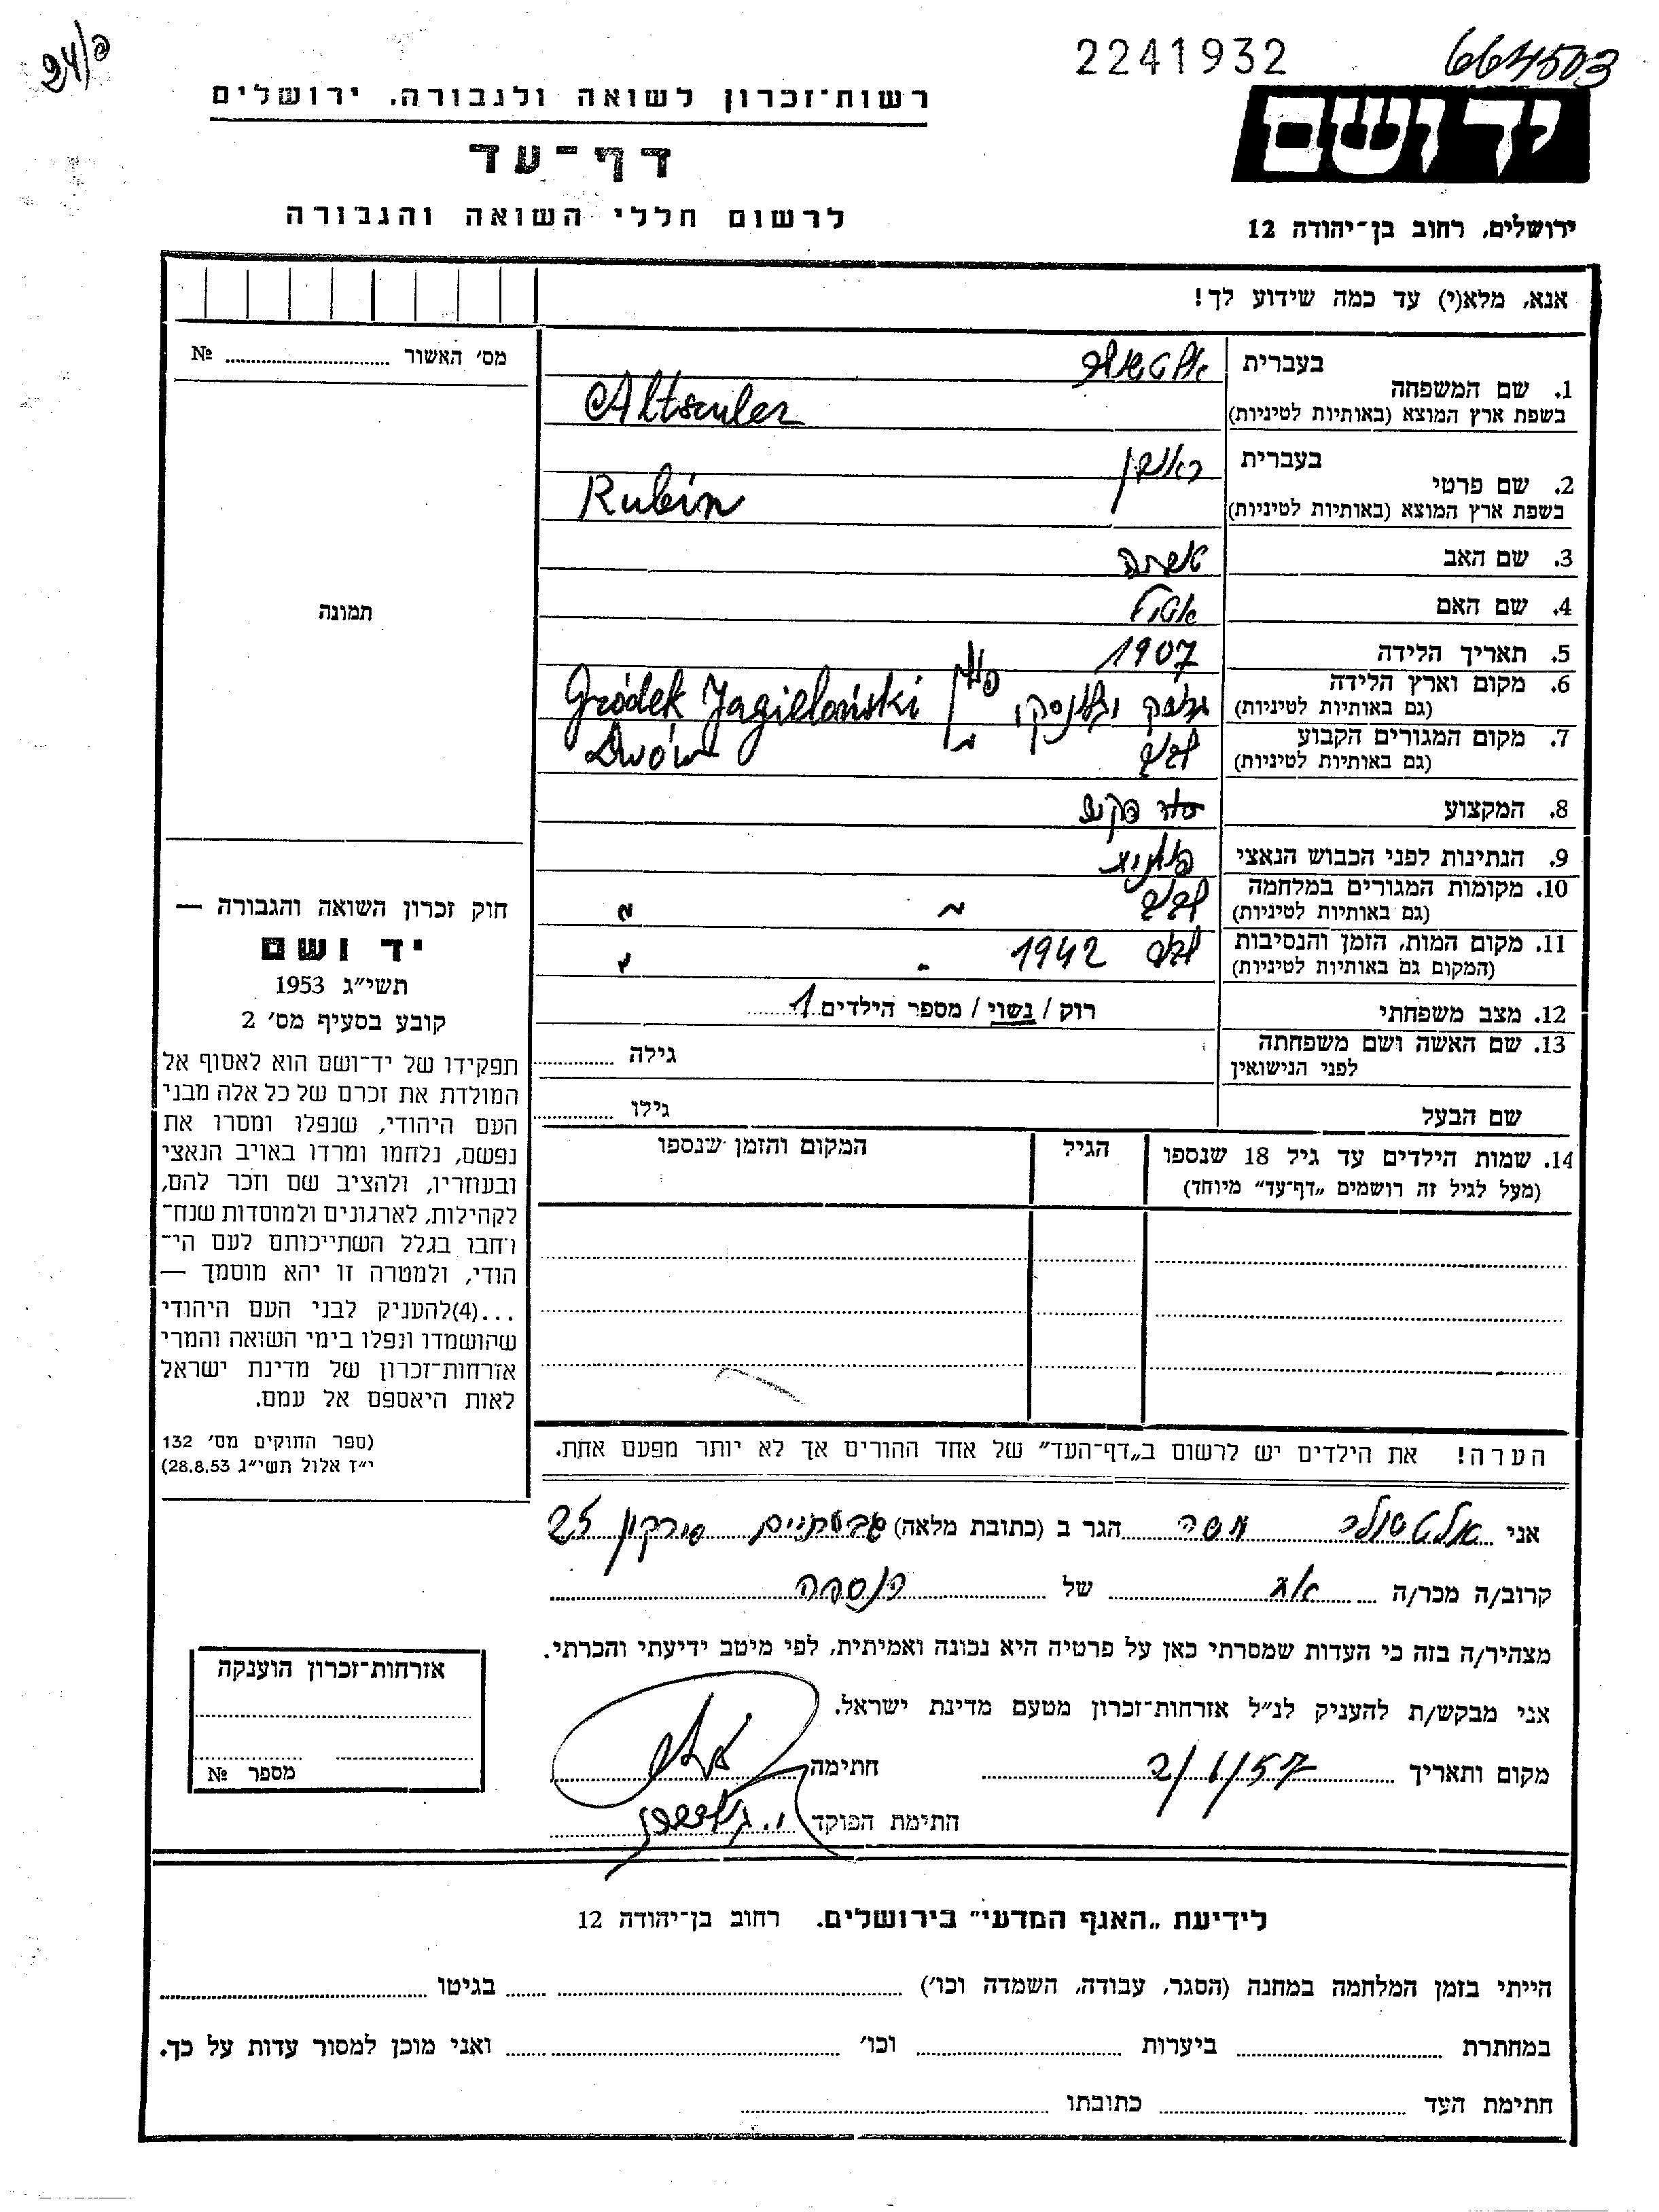 24/פ
2241932
664503
רשות־זכרון לשואה ולגבורה, ירושלים
דף־עד
לרשום חללי השואה והגבורה
יד ושם
ירושלים, רחוב בן־יהודה 12
אנא, מלא(י) עד כמה שידוע לך!
מס׳ האשור № ........
תמונה
בעברית אלטשולר
1. שם המשפחה
בשפת ארץ המוצא (באותיות לטיניות) Altsculer
בעברית ראובן
2. שם פרטי
בשפת ארץ המוצא (באותיות לטיניות) Rubin
3. שם האב
4. שם האם
5. תאריך הלידה 1907
6. מקום וארץ הלידה
(גם באותיות לטיניות) Gródek Jagieloński
7. מקום המגורים הקבוע לבוב
(גם באותיות לטיניות) Lwów
8. המקצוע
9. הנתינות לפני הכבוש הנאצי פולנית
10. מקומות המגורים במלחמה לבוב
(גם באותיות לטיניות) " "
11. מקום המות, הזמן והנסיבות לבוב 1942
(המקום גם באותיות לטיניות)
12. מצב משפחתי רוק / נשוי / מספר הילדים 1
13. שם האשה ושם משפחתה גילה
לפני הנישואין
שם הבעל גילו
14. שמות הילדים עד גיל 18 שנספו הגיל המקום והזמן שנספו
(מעל לגיל זה רושמים „דף־עד” מיוחד)
חוק זכרון השואה והגבורה —
יד ושם
תשי״ג 1953
קובע בסעיף מס׳ 2
תפקידו של יד־ושם הוא לאסוף אל
המולדת את זכרם של כל אלה מבני
העם היהודי, שנפלו ומסרו את
נפשם, נלחמו ומרדו באויב הנאצי
ובעוזריו, ולהציב שם וזכר להם,
לקהילות, לארגונים ולמוסדות שנח־
רחבו בגלל השתייכותם לעם הי־
הודי, ולמטרה זו יהא מוסמך —
...(4)להעניק לבני העם היהודי
שהושמדו ונפלו בימי השואה והמרי
אזרחות־זכרון של מדינת ישראל
לאות היאספם אל עמם.
(ספר החוקים מס׳ 132
י״ז אלול תשי״ג 28.8.53)
הערה! את הילדים יש לרשום ב„דף־העד” של אחד ההורים אך לא יותר מפעם אחת.
אני אלטשולר משה הגר ב (כתובת מלאה) גבעתיים בורכוב 25
קרוב/ה מכר/ה אח של הנספה
מצהיר/ה בזה כי העדות שמסרתי כאן על פרטיה היא נכונה ואמיתית, לפי מיטב ידיעתי והכרתי.
אני מבקש/ת להעניק לנ״ל אזרחות־זכרון מטעם מדינת ישראל.
מקום ותאריך 2/1/57 חתימה
חתימת הפוקד
אזרחות־זכרון הוענקה
מספר №
לידיעת „האגף המדעי” בירושלים. רחוב בן־יהודה 12
הייתי בזמן המלחמה במחנה (הסגר, עבודה, השמדה וכו׳) ........ בגיטו ........
במחתרת ........ ביערות ........ וכו׳ ........ ואני מוכן למסור עדות על כך.
חתימת העד ........ כתובתו ........